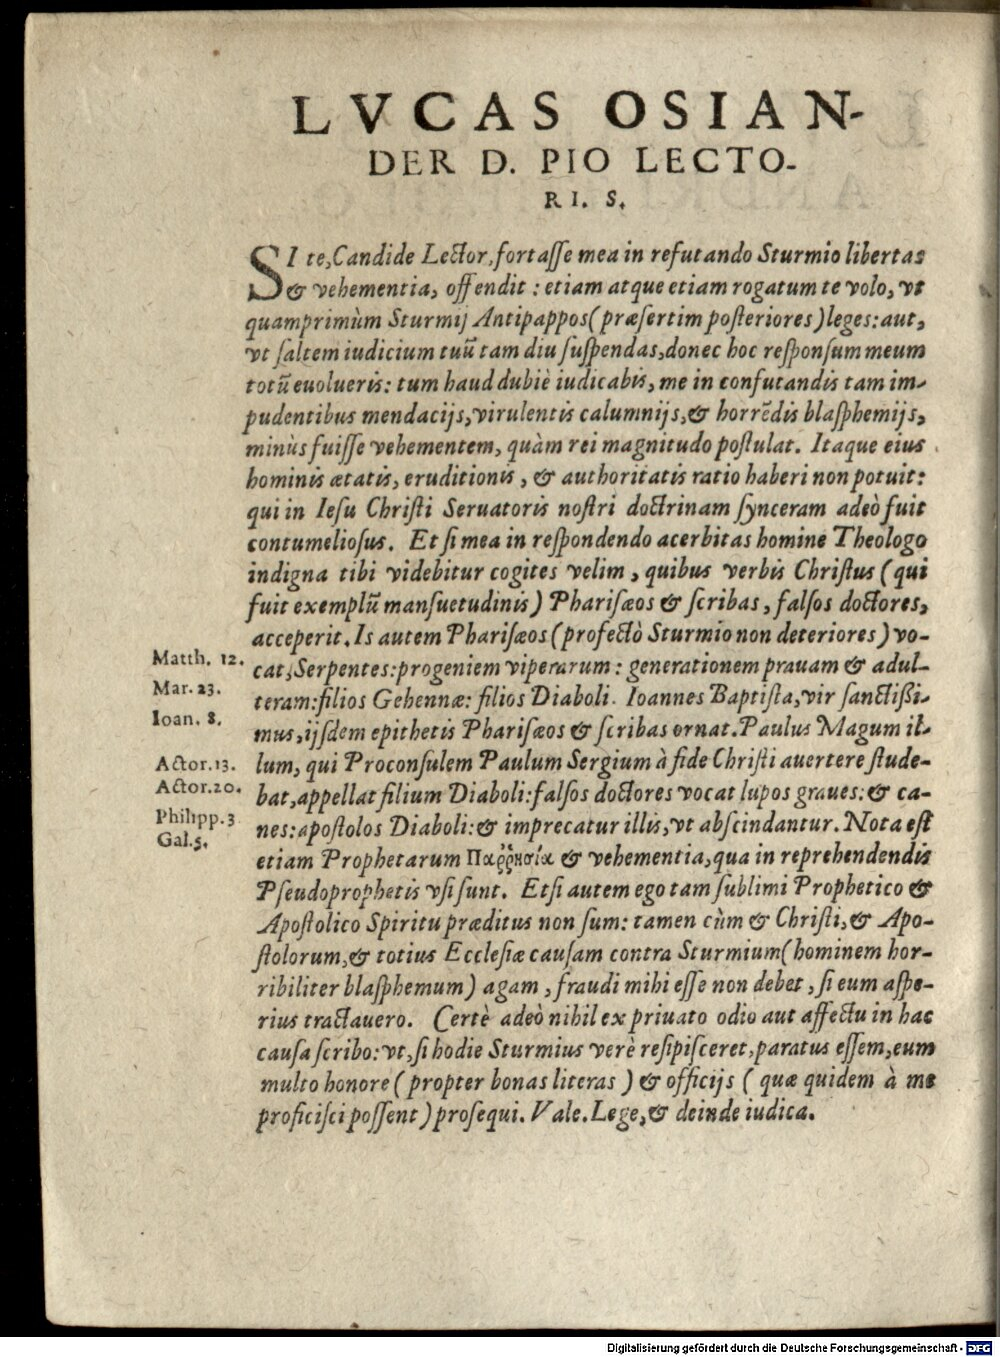 LVCAS OSIAN-
DER D. PIO LECTO-
RI. S.
SI te, Candide Lector, fortaſſe mea in refutando Sturmio libertas
& vehementia, offendit : etiam atque etiam rogatum te volo, vt
quamprimùm Sturmij Antipappos (præſertim poſteriores) leges: aut,
vt ſaltem iudicium tuũ tam diu ſuſpendas, donec hoc reſponſum meum
totũ euolueris: tum haud dubiè iudicabis, me in confutandis tam im-
pudentibus mendacijs, virulentis calumnijs, & horrẽdis blaſphemijs,
minùs fuiſſe vehementem, quàm rei magnitudo poſtulat. Itaque eius
hominis ætatis, eruditionis, & authoritatis ratio haberi non potuit:
qui in Ieſu Chriſti Seruatoris noſtri doctrinam ſynceram adeò fuit
contumelioſus. Et ſi mea in reſpondendo acerbitas homine Theologo
indigna tibi videbitur cogites velim, quibus verbis Chriſtus (qui
fuit exemplũ manſuetudinis) Phariſæos & ſcribas, falſos doctores,
acceperit. Is autem Phariſæos (profectò Sturmio non deteriores) vo-
Matth. 12. cat, Serpentes: progeniem viperarum : generationem prauam & adul-
Mar. 23. teram: filios Gehennæ: filios Diaboli. Ioannes Baptiſta, vir ſanctiſsi-
Ioan. 8. mus, ijſdem epithetis Phariſæos & ſcribas ornat. Paulus Magum il-
Actor. 13. lum, qui Proconſulem Paulum Sergium à fide Chriſti auertere ſtude-
Actor. 20. bat, appellat filium Diaboli: falſos doctores vocat lupos graues: & ca-
Philipp. 3 nes: apoſtolos Diaboli: & imprecatur illis, vt abſcindantur. Nota eſt
Gal. 5. etiam Prophetarum Παῤῥησία & vehementia, qua in reprehendendis
Pſeudoprophetis vſi ſunt. Etſi autem ego tam ſublimi Prophetico &
Apoſtolico Spiritu præditus non ſum: tamen cùm & Chriſti, & Apo-
ſtolorum, & totius Eccleſiæ cauſam contra Sturmium (hominem hor-
ribiliter blaſphemum) agam, fraudi mihi eſſe non debet, ſi eum aſpe-
rius tractauero. Certè adeò nihil ex priuato odio aut affectu in hac
cauſa ſcribo: vt, ſi hodie Sturmius verè reſipiſceret, paratus eſſem, eum
multo honore (propter bonas literas) & officijs (quæ quidem à me
proficiſci poſſent) proſequi. Vale. Lege, & deinde iudica.
Digitalisierung gefördert durch die Deutsche Forschungsgemeinschaft - DFG